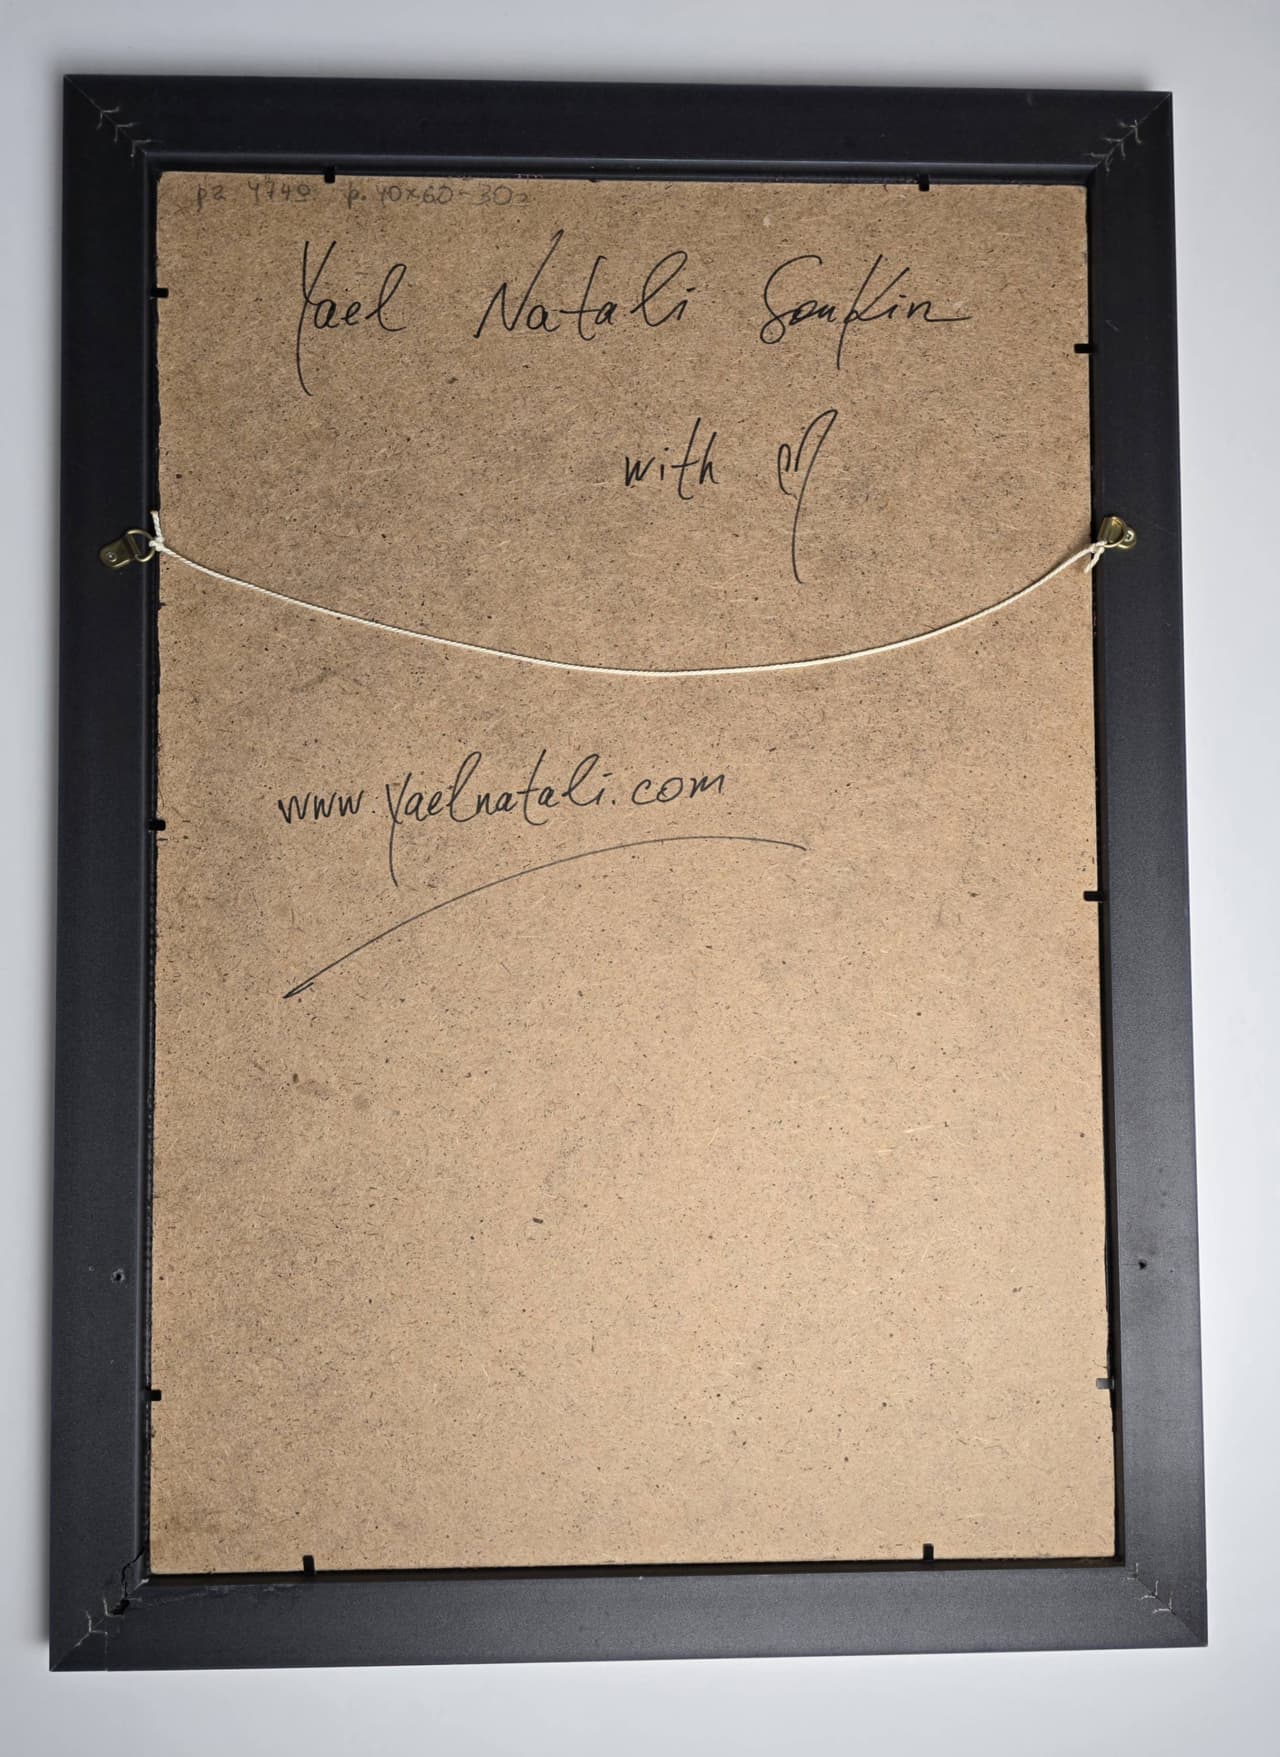 pz 4749 p. 40x60-30z
Yael Natali Soupkin
with
www.yaelnatali.com